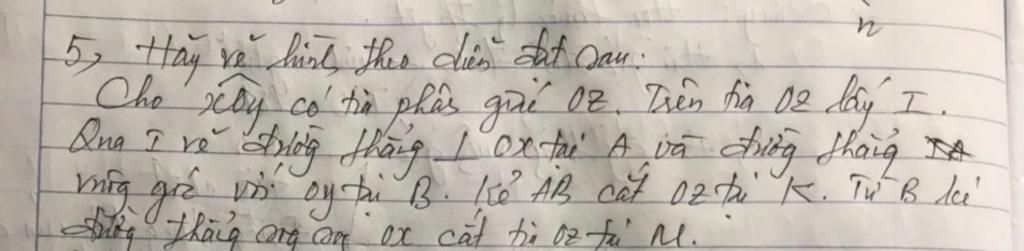 n
5, Hãy vẽ hình theo diễn đạt sau:
Cho xÔy có tia phân giác Oz. Trên tia Oz lấy I.
Qua I vẽ đường thẳng ⊥ Ox tại A và đường thẳng
vuông góc với Oy tại B. Kẻ AB cắt Oz tại K. Từ B kẻ
đường thẳng song song Ox cắt tia Oz tại M.